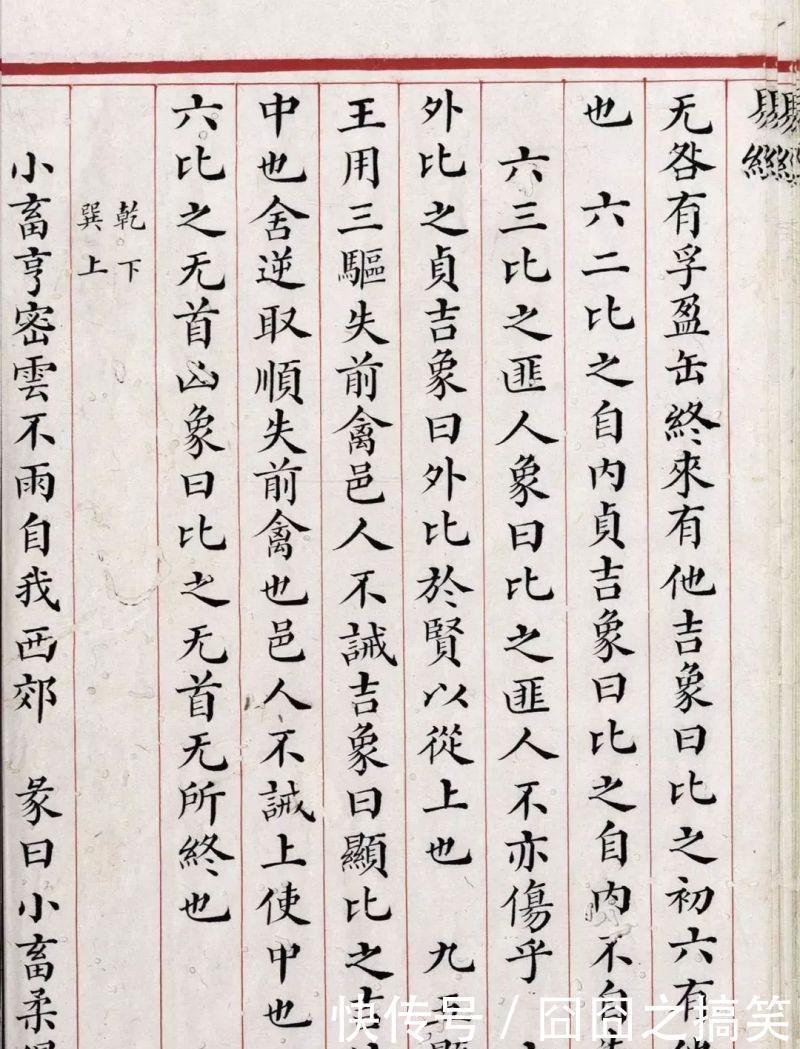 易經
无咎有孚盈缶終來有他吉象曰比之初六有
也　六二比之自內貞吉象曰比之自內不自
六三比之匪人象曰比之匪人不亦傷乎
外比之貞吉象曰外比於賢以從上也　九五
王用三驅失前禽邑人不誡吉象曰顯比之吉
中也舍逆取順失前禽也邑人不誡上使中也
六比之无首凶象曰比之无首无所終也
乾下
巽上
小畜亨密雲不雨自我西郊　彖曰小畜柔
快传号 / 囧囧之搞笑